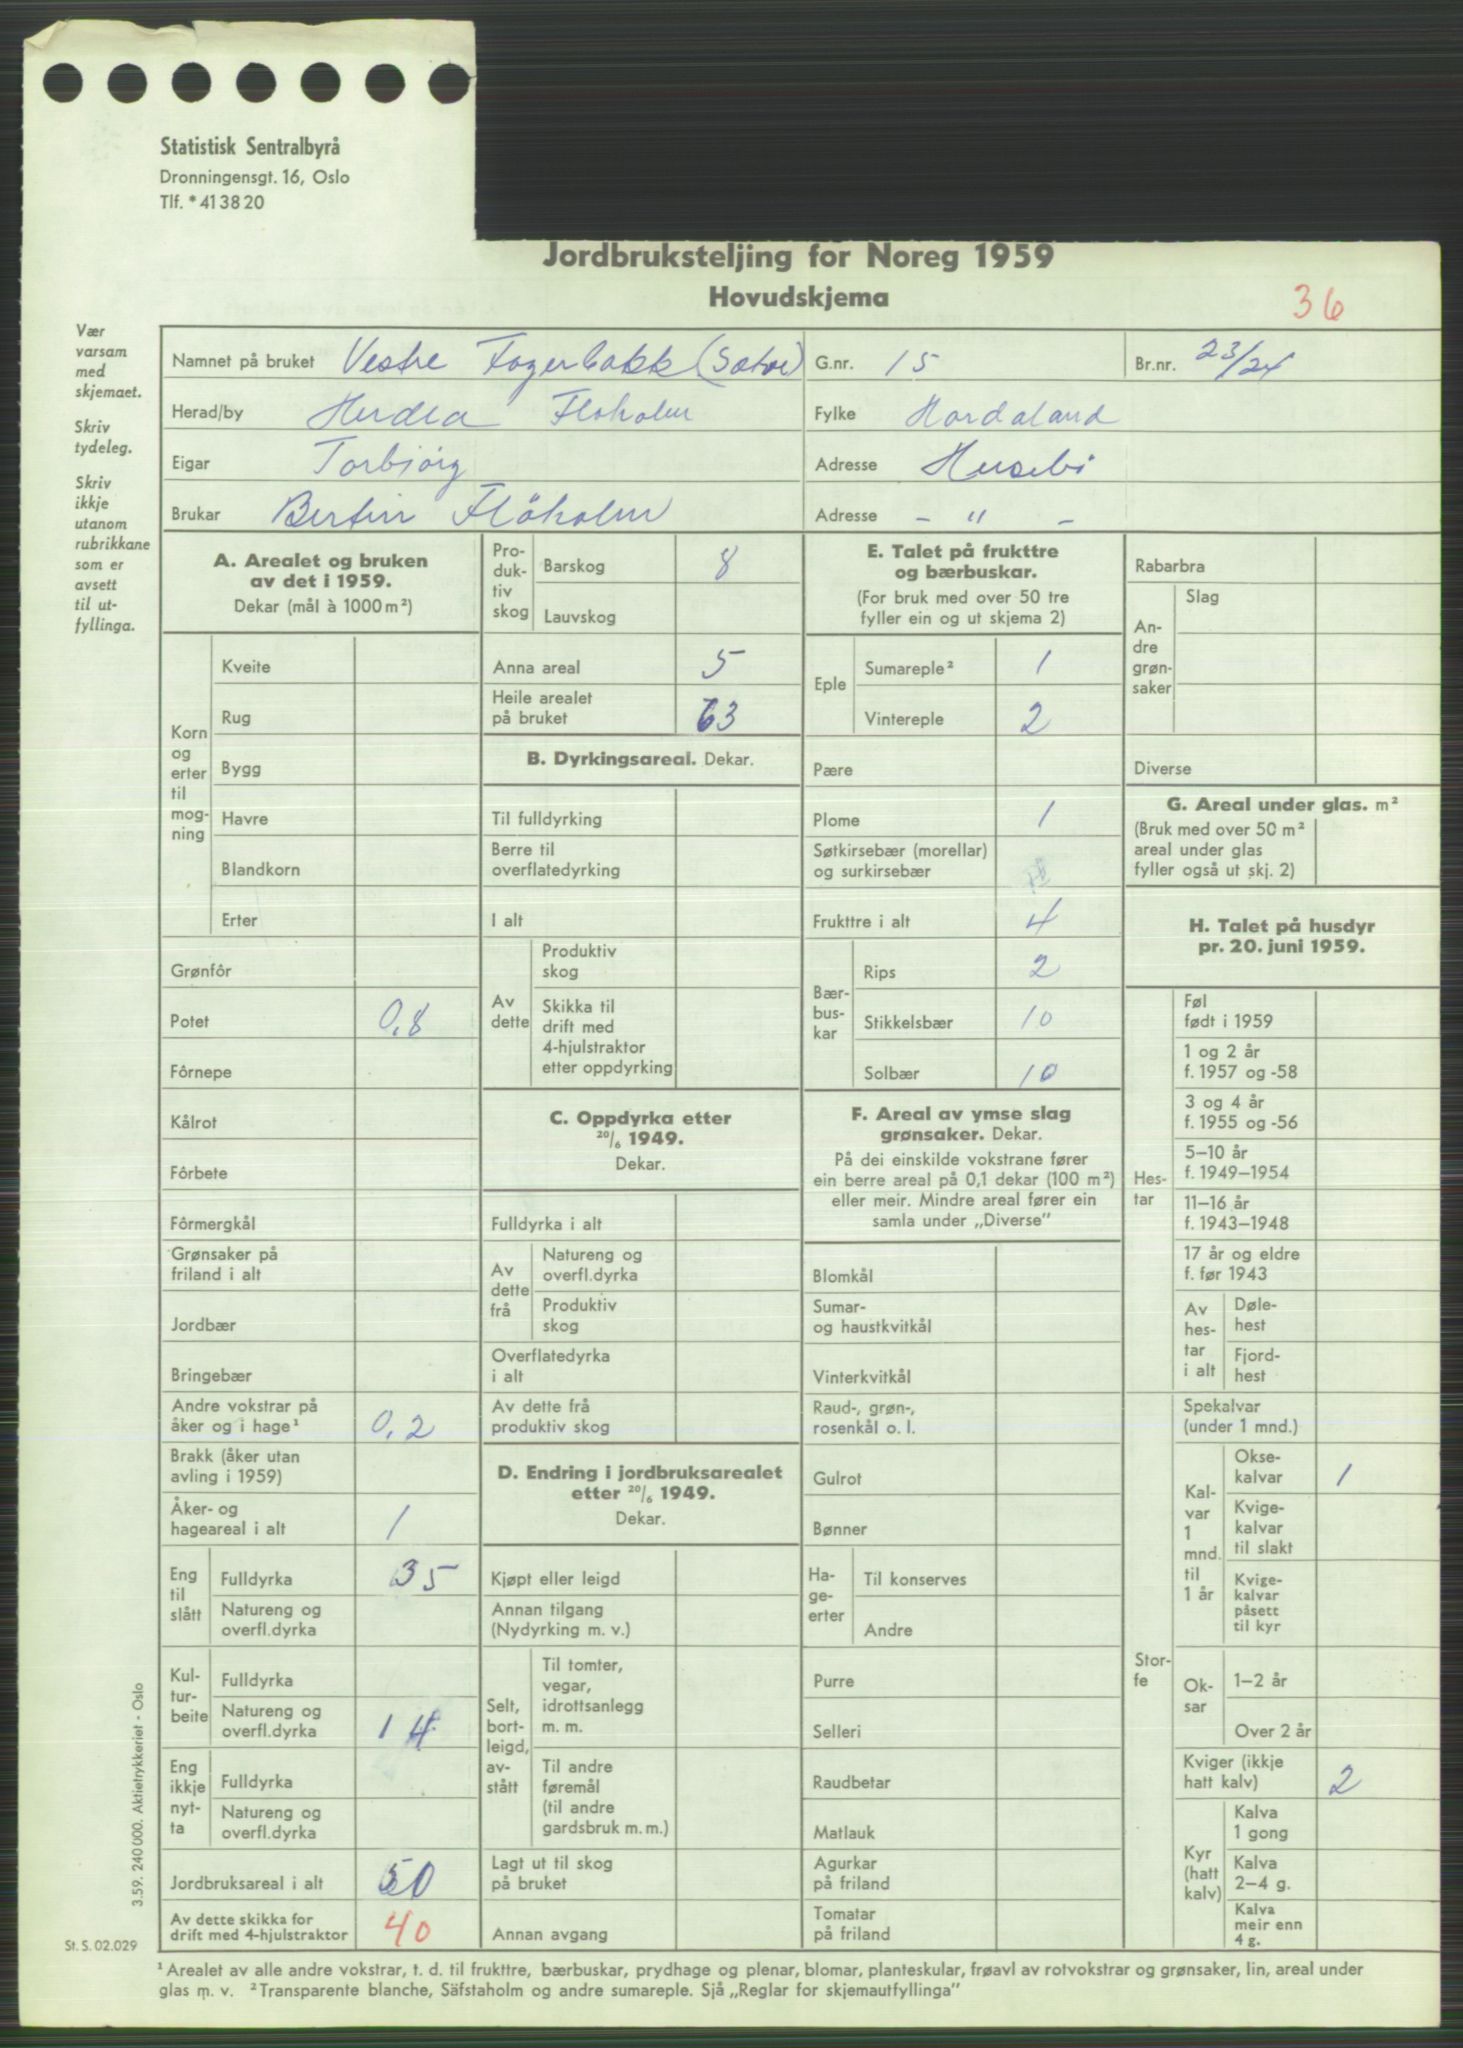 Statistisk Sentralbyrå
Dronningensgt. 16, Oslo
Tlf. * 41 38 20
Jordbruksteljing for Noreg 1959
Hovudskjema
36
Vær
varsam
med
skjemaet.
Skriv
tydeleg.
Skriv
ikkje
utanom
rubrikkane
som er
avsett
til ut-
fyllinga.
Namnet på bruket Vestre Fagerbakk (Sætre) G.nr. 15 Br.nr. 23/24
Herad/by Herdla Floholm Fylke Hordaland
Eigar Torbjörg Adresse Husebö
Brukar Bertin Flöholm Adresse - " -
A. Arealet og bruken
av det i 1959.
Dekar (mål à 1000 m²)
Korn og erter til mog-ning
Kveite
Rug
Bygg
Havre
Blandkorn
Erter
Grønfôr
Potet 0,8
Fôrnepe
Kålrot
Fôrbete
Fôrmergkål
Grønsaker på
friland i alt
Jordbær
Bringebær
Andre vokstrar på
åker og i hage¹ 0,2
Brakk (åker utan
avling i 1959)
Åker- og
hageareal i alt 1
Eng til slått
Fulldyrka 35
Natureng og
overfl.dyrka
Kul-tur-beite
Fulldyrka
Natureng og
overfl.dyrka 14
Eng ikkje nyt-ta
Fulldyrka
Natureng og
overfl.dyrka
Jordbruksareal i alt 50
Av dette skikka for
drift med 4-hjulstraktor 40
Pro-duk-tiv skog
Barskog 8
Lauvskog
Anna areal 5
Heile arealet
på bruket 63
B. Dyrkingsareal. Dekar.
Til fulldyrking
Berre til
overflatedyrking
I alt
Av dette
Produktiv
skog
Skikka til
drift med
4-hjulstraktor
etter oppdyrking
C. Oppdyrka etter
20/6 1949.
Dekar.
Fulldyrka i alt
Av dette frå
Natureng og
overfl.dyrka
Produktiv
skog
Overflatedyrka
i alt
Av dette frå
produktiv skog
D. Endring i jordbruksarealet
etter 20/6 1949.
Dekar.
Kjøpt eller leigd
Annan tilgang
(Nydyrking m. v.)
Selt, bort-leigd, av-stått
Til tomter,
vegar,
idrottsanlegg
m. m.
Til andre
føremål
(til andre
gardsbruk m. m.)
Lagt ut til skog
på bruket
Annan avgang
E. Talet på frukttre
og bærbuskar.
(For bruk med over 50 tre
fyller ein og ut skjema 2)
Eple
Sumareple² 1
Vintereple 2
Pære
Plome 1
Søtkirsebær (morellar)
og surkirsebær
Frukttre i alt 4
Bær-bus-kar
Rips 2
Stikkelsbær 10
Solbær 10
F. Areal av ymse slag
grønsaker. Dekar.
På dei einskilde vokstrane fører
ein berre areal på 0,1 dekar (100 m²)
eller meir. Mindre areal fører ein
samla under „Diverse”
Blomkål
Sumar-
og haustkvitkål
Vinterkvitkål
Raud-, grøn-,
rosenkål o. l.
Gulrot
Bønner
Ha-ge-erter
Til konserves
Andre
Purre
Selleri
Raudbetar
Matlauk
Agurkar
på friland
Tomatar
på friland
Rabarbra
An-dre grøn-saker
Slag
Diverse
G. Areal under glas. m²
(Bruk med over 50 m²
areal under glas
fyller også ut skj. 2)
H. Talet på husdyr
pr. 20. juni 1959.
Hes-tar
Føl
født i 1959
1 og 2 år
f. 1957 og -58
3 og 4 år
f. 1955 og -56
5–10 år
f. 1949–1954
11–16 år
f. 1943–1948
17 år og eldre
f. før 1943
Av hes-tar i alt
Døle-
hest
Fjord-
hest
Stor-fe
Spekalvar
(under 1 mnd.)
Kal-var 1 mnd. til 1 år
Okse-
kalvar 1
Kvige-
kalvar
til slakt
Kvige-
kalvar
påsett
til kyr
Ok-sar
1–2 år
Over 2 år
Kviger (ikkje
hatt kalv) 2
Kyr (hatt kalv)
Kalva
1 gong
Kalva
2–4 g.
Kalva
meir enn
4 g.
3.59. 240 000. Aktietrykkeriet - Oslo
St. S. 02.029
¹ Arealet av alle andre vokstrar, t. d. til frukttre, bærbuskar, prydhage og plenar, blomar, planteskular, frøavl av rotvokstrar og grønsaker, lin, areal under
glas m. v. ² Transparente blanche, Säfstaholm og andre sumareple. Sjå „Reglar for skjemautfyllinga”